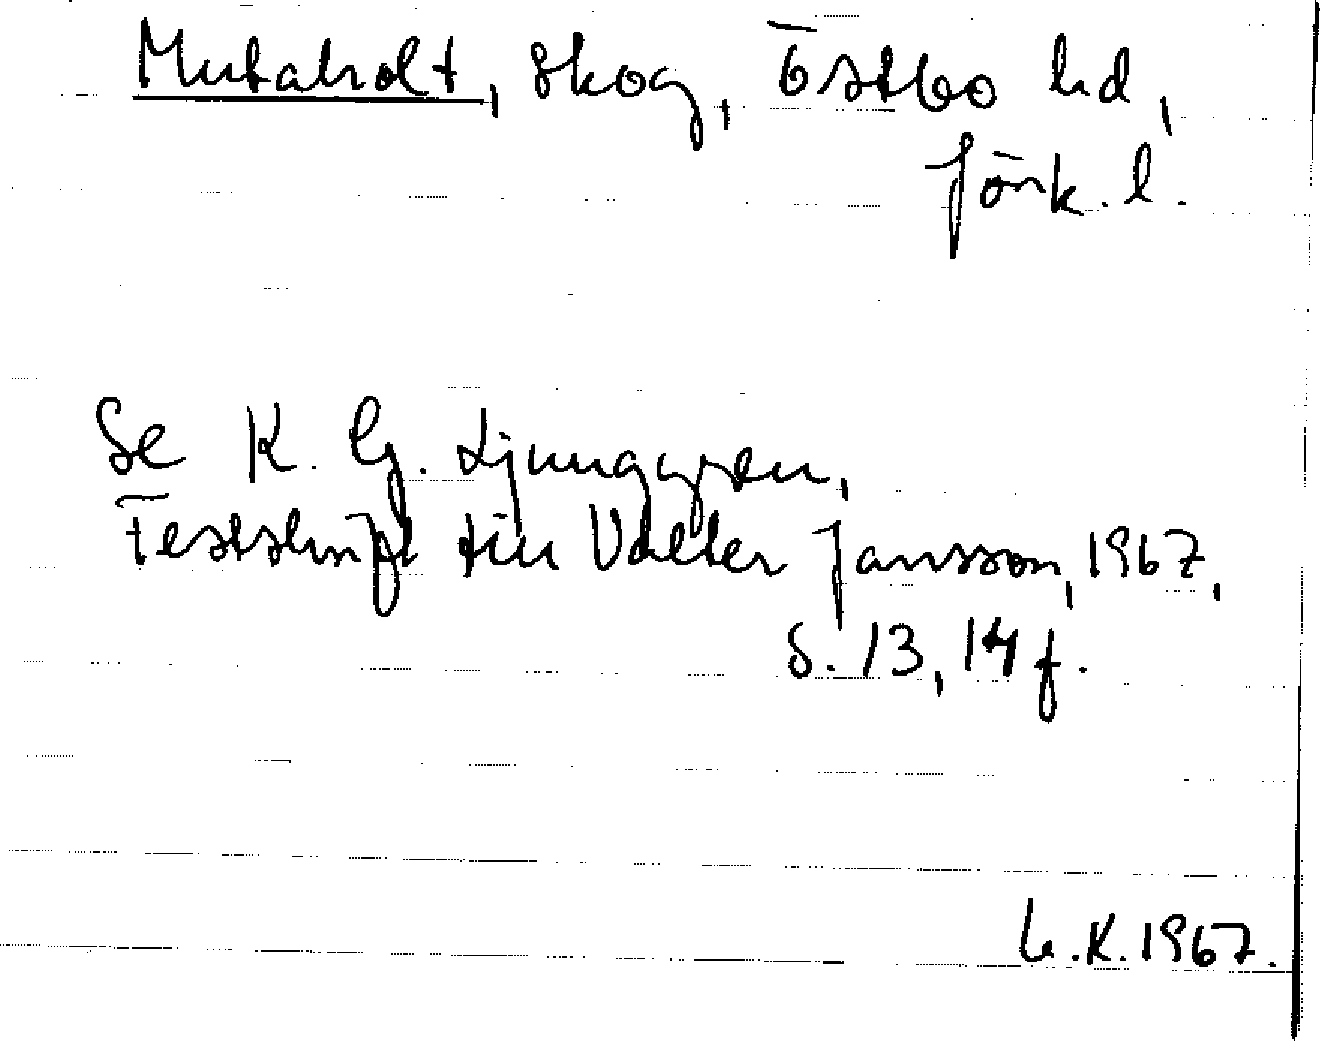 Mutaholt, skog, Östbo hd,
Jönk. l.
Se K. G. Ljunggren,
Festskrift till Valter Jansson, 1967,
s. 13, 14 f.
L.K. 1967.